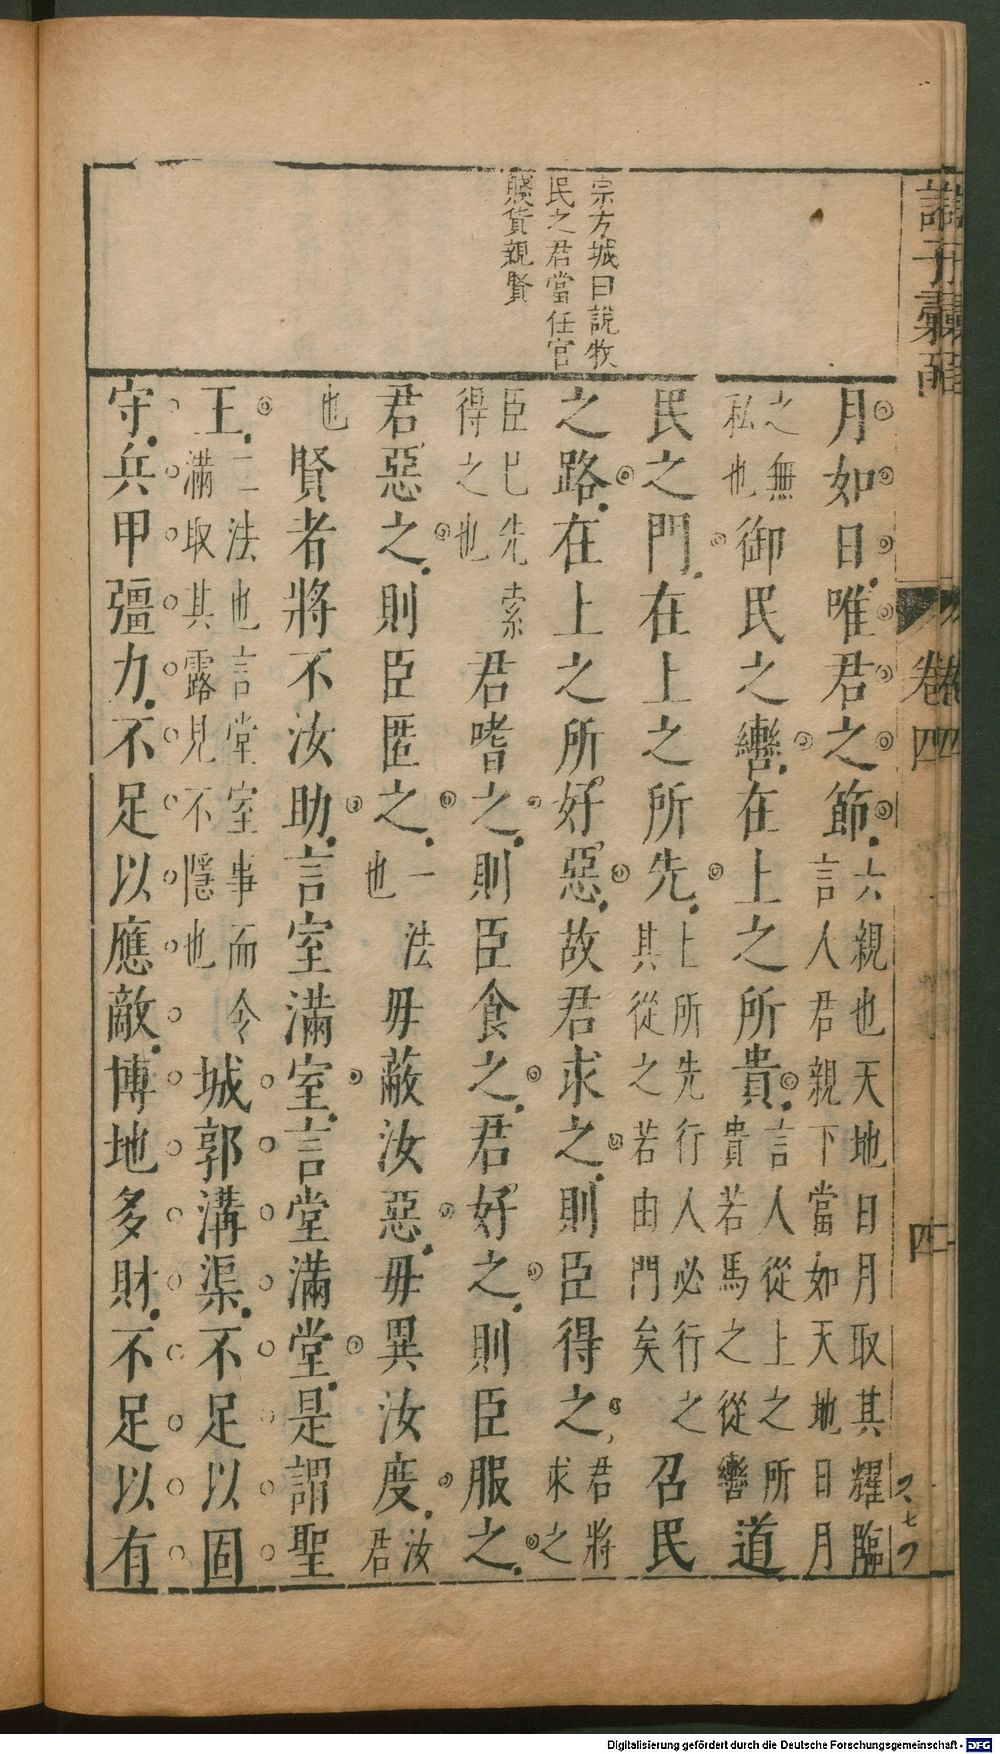 諸子彙函
卷四
四
宗方城曰說牧
民之君當任官
賤貨親賢
月如日唯君之節六親也天地日月取其耀臨言人君親下當如天地日月
之無私也御民之轡在上之所貴言人從上之所貴若馬之從轡道
民之門在上之所先上所先行人必行之其從之若由門矣召民
之路在上之所好惡故君求之則臣得之君將求之
臣已先索得之也君嗜之則臣食之君好之則臣服之
君惡之則臣匿之一法也毋蔽汝惡毋異汝度汝君
也賢者將不汝助言室滿室言堂滿堂是謂聖
王二法也言堂室事而令滿取其露見不隱也城郭溝渠不足以固
守兵甲彊力不足以應敵博地多財不足以有
Digitalisierung gefördert durch die Deutsche Forschungsgemeinschaft - DFG